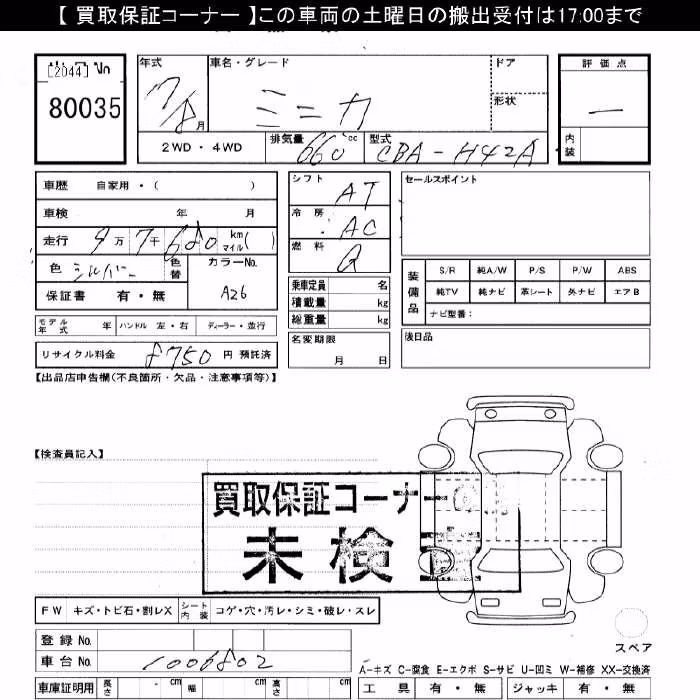 【 買取保証コーナー 】この車両の土曜日の搬出受付は17:00まで
[2044] No
80035
年式
17/8 月
車名・グレード
ミニカ
ドア
形状
評価点
—
内装
2WD ・ 4WD
排気量 660 cc
型式 CBA-H42A
車歴 自家用・( )
車検 年 月
走行 9万 7千 680 km マイル ( )
色 シルバー 色替
カラーNo.
A26
保証書 有・無
モデル年式 年 ハンドル 左・右 ディーラー・並行
リサイクル料金 8750 円 預託済
シフト AT
冷房 AC
燃料 G
乗車定員 名
積載量 kg
総重量 kg
名変期限
月 日
セールスポイント
装備品
S/R 純A/W P/S P/W ABS
純TV 純ナビ 革シート 外ナビ エアB
ナビ型番:
後日品
【出品店申告欄(不良箇所・欠品・注意事項等)】
【検査員記入】
買取保証コーナー
未検
FW キズ・トビ石・割レX シート内装 コゲ・穴・汚レ・シミ・破レ・スレ
登録No.
車台No. 1006802
車庫証明用 長さ cm 幅 cm 高さ cm
スペア
A-キズ C-腐食 E-エクボ S-サビ U-凹ミ W-補修 XX-交換済
工具 有・無 ジャッキ 有・無